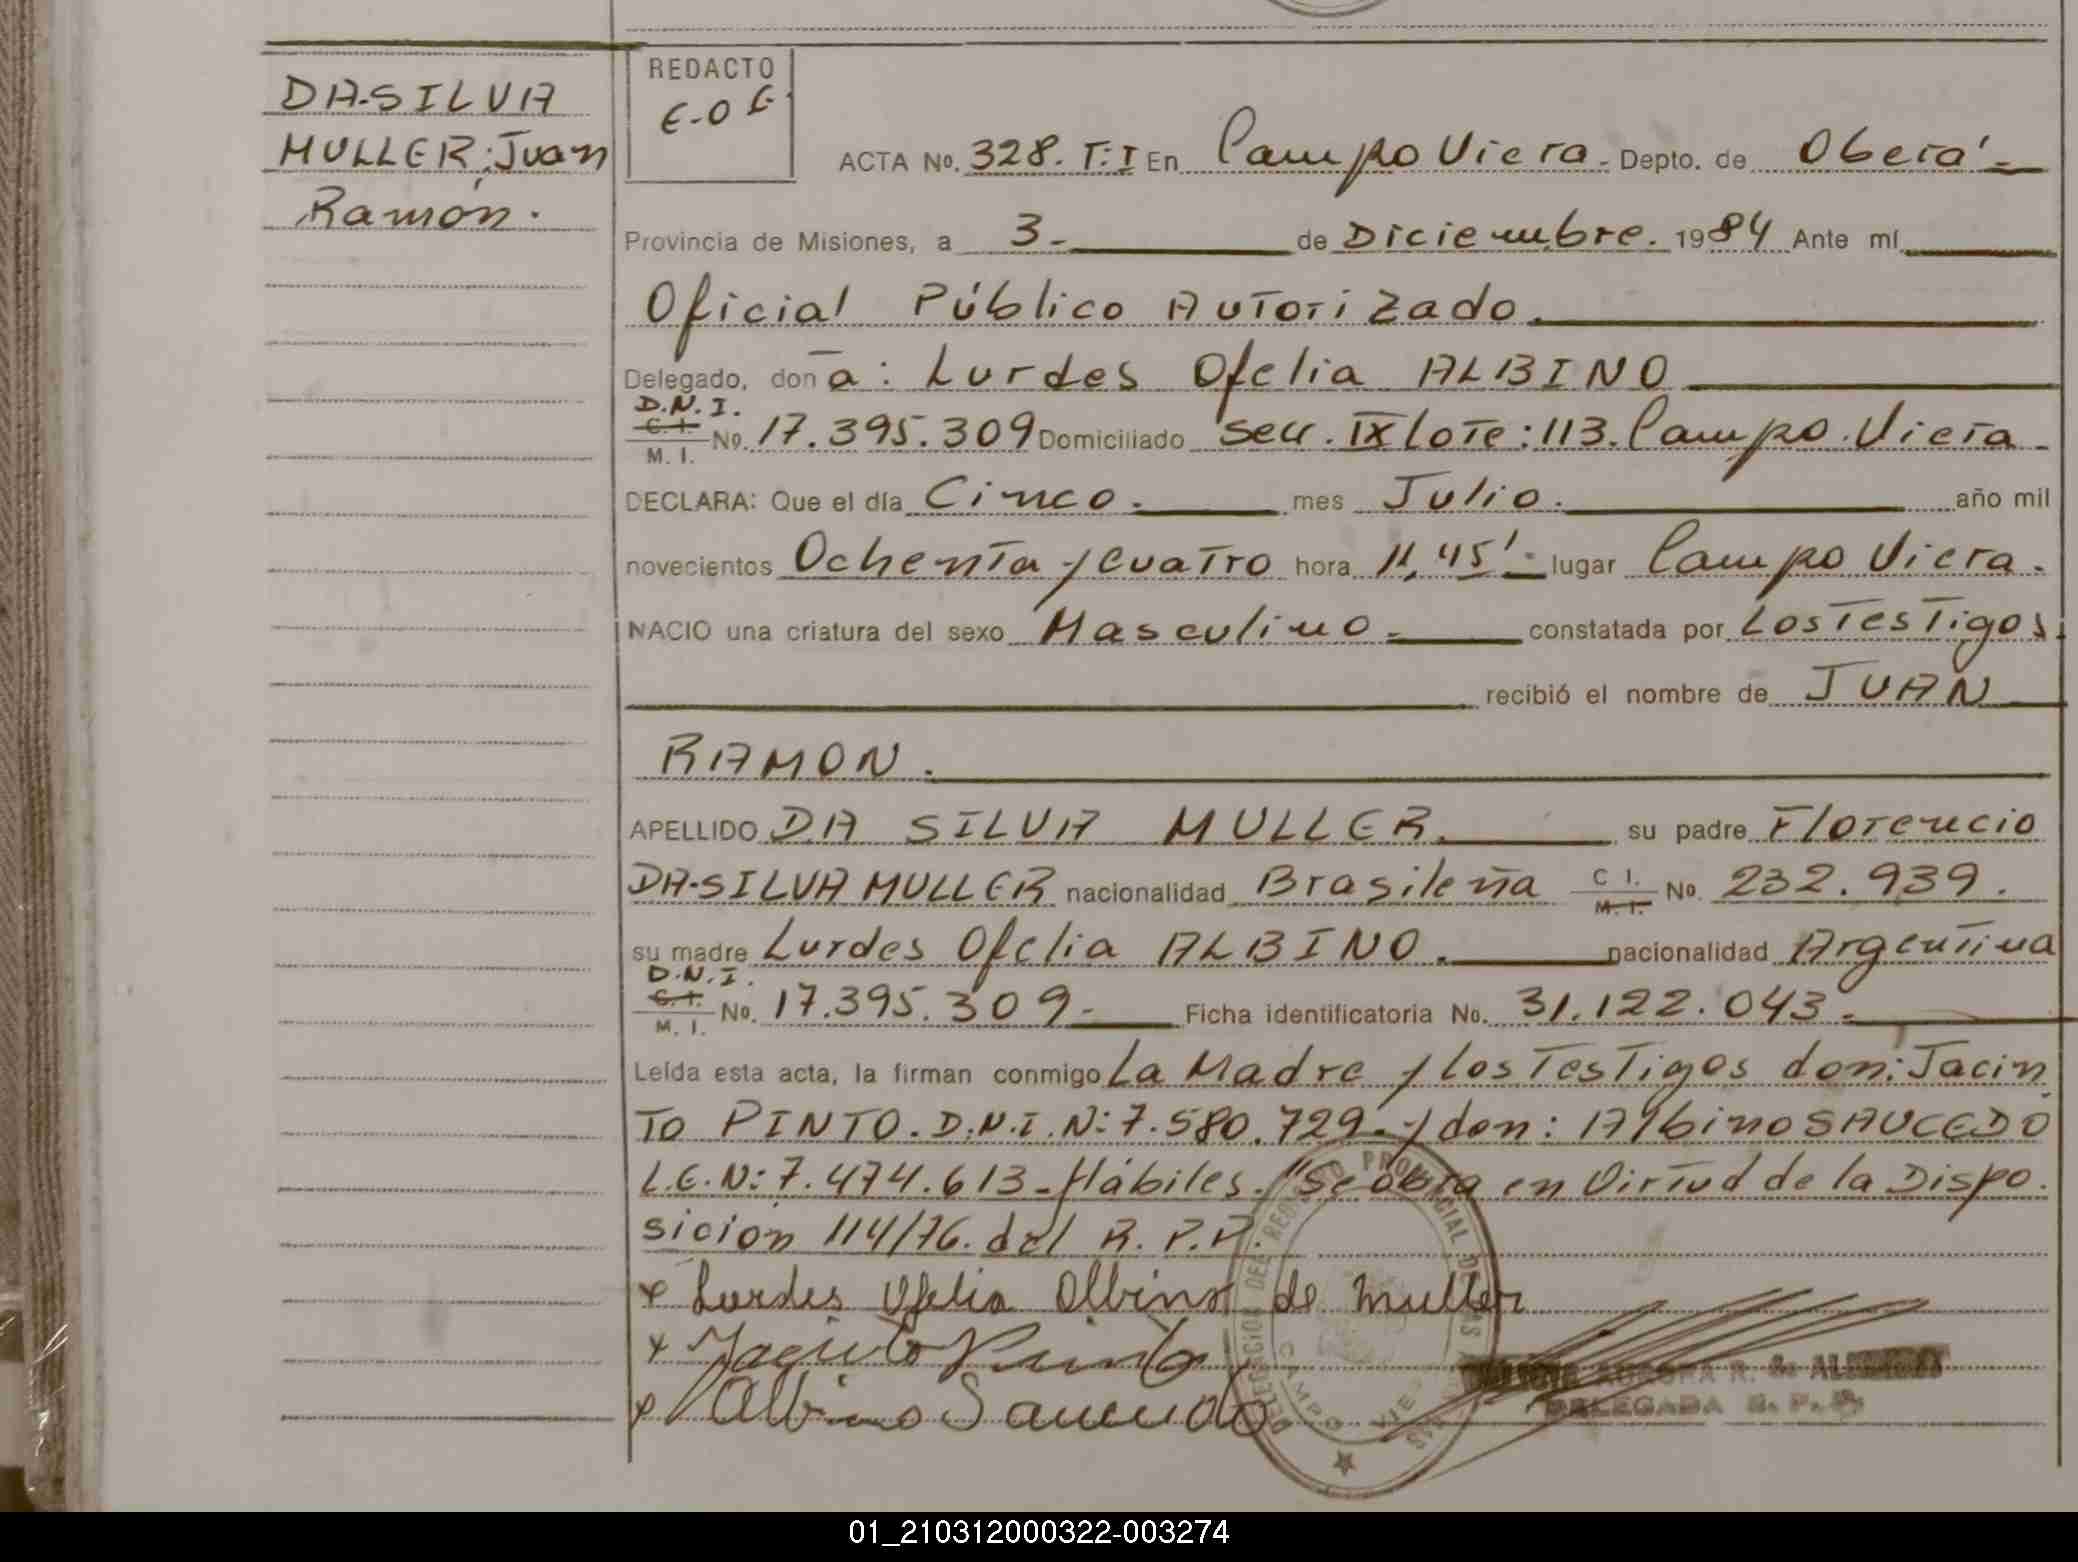 DA-SILVA
MULLER; Juan
Ramón.
REDACTO
E-O E.
ACTA No. 328. T: I En Campo Viera. Depto. de Oberá.-
Provincia de Misiones, a 3.- de Diciembre. 1984 Ante mí
Oficial Público Autorizado.
Delegado, don a: Lurdes Ofelia ALBINO
D.N.I.
C. I.
M. I.
No. 17.395.309 Domiciliado secc. IX Lote: 113. Campo. Viera.
DECLARA: Que el día Cinco. mes Julio. año mil
novecientos Ochenta y cuatro hora 11,45'- lugar Campo Viera.
NACIO una criatura del sexo Masculino.- constatada por Los Testigos.
recibió el nombre de JUAN
RAMON.
APELLIDO DA SILVA MULLER. su padre Florencio
DA-SILVA MULLER nacionalidad Brasileña C I. M. I. No. 232.939.
su madre Lurdes Ofelia ALBINO. nacionalidad Argentina
D.N.I.
C. I.
M. I.
No. 17.395.309- Ficha identificatoria No. 31.122.043.-
Leída esta acta, la firman conmigo La Madre y los Testigos don: Jacin
To PINTO. D.N.I. N: 7.580.729.- y don: Albino SAUCEDO
L.E.N: 7.474.613- Hábiles. "Se obra en Virtud de la Dispo.
sición 114/76. del R. P.P.
x Lurdes Ofelia Albino de Muller
x Jacinto Pinto
x Albino Saucedo
DELEGACION DEL REGISTRO PROVINCIAL DE LAS
CAMPO VIERA
AURORA R. S.
DELEGADA R. P. P.
01_210312000322-003274